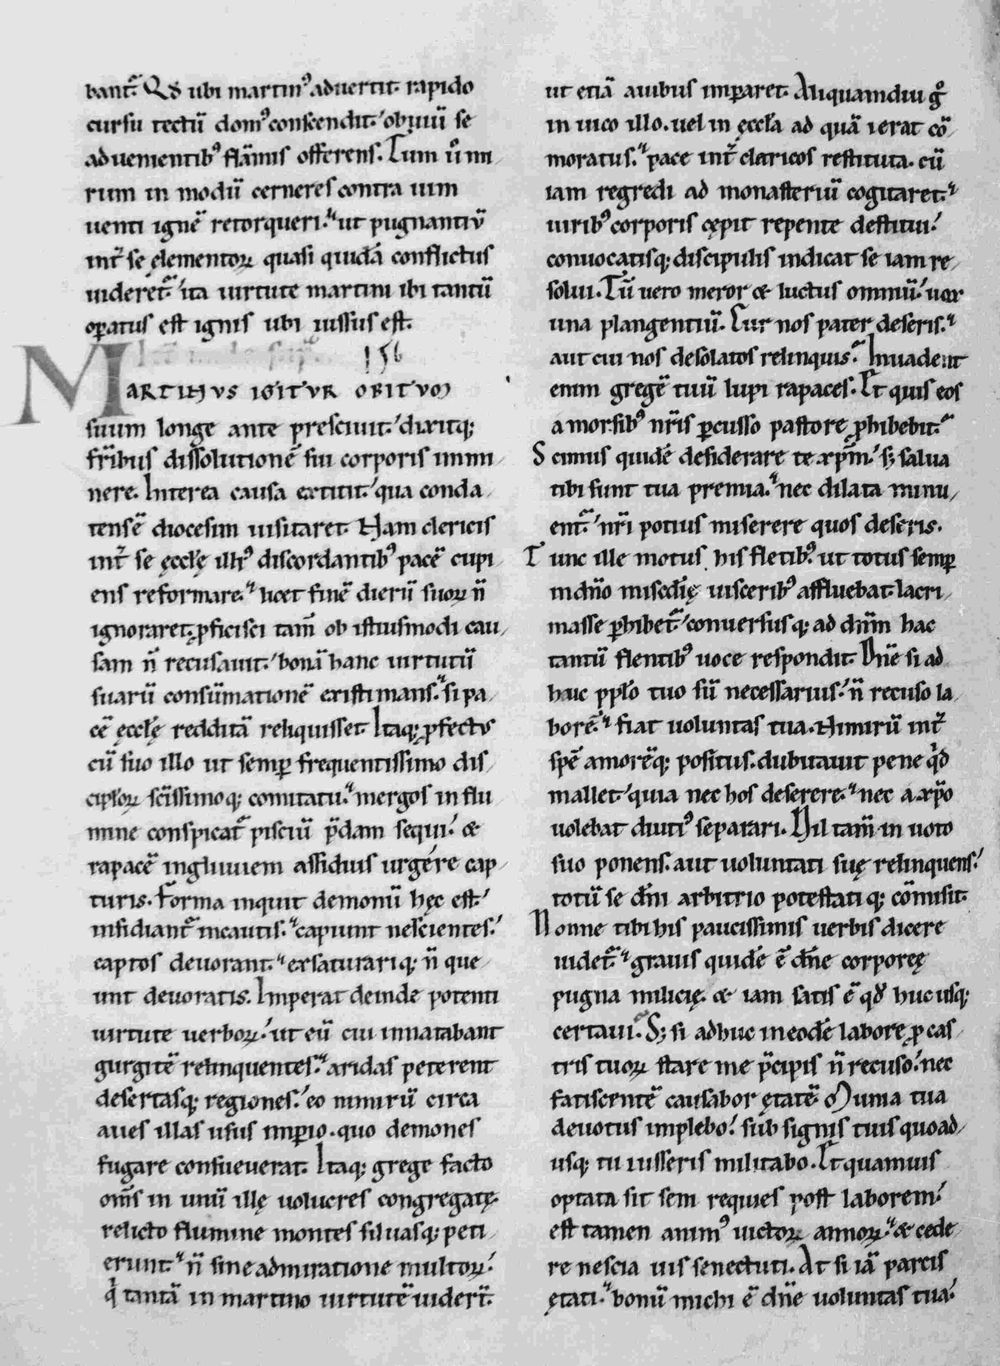 bant᷒. Qd̄ ubi martinꝰ aduertit. rapido
cursu tectū domꝰ conscendit. obuiū se
aduenientibꝰ flāmis offerens. Tum ū mi
rum in modū cerneres contra uim
uenti ignē retorqueri. ut pugnantiū
int̄ se elementoꝝ quasi quidā conflictus
uideret᷒. ita uirtute martini ibi tantū
oꝑatus est ignis ubi iussus est.
156
MARTINVS IGITVR OBITVM
suum longe ante presciuit. dixitq;
fr̄ibus dissolutionē sui corporis immi
nere. Interea causa extitit. qua conda
tensē diocesim uisitaret. Nam clericis
int̄ se ęccłę illiꝰ discordantibꝰ pacē cupi
ens reformare. licet finē dierū suoꝝ n̄
ignoraret. ꝓficisci tam̄ ob istiusmodi cau
sam n̄ recusauit. bonā hanc uirtutū
suarū consūmationē existimans. si pa
cē ęccłę redditā reliquisset. Itaq; ꝓfectus
cū suo illo ut semꝑ frequentissimo dis
cipłoꝝ sc̄issimoq; comitatu. mergos in flu
mine conspicat᷒ pisciū p̄dam sequi. &
rapacē ingluuiem assiduis urgere cap
turis. Forma inquit demonū hęc est.
insidiant᷒ incautis. capiunt nescientes.
captos deuorant. exsaturariq; n̄ que
unt deuoratis. Imperat deinde potenti
uirtute uerboꝝ. ut eū cui innatabant
gurgitē relinquentes. aridas peterent
desertasq; regiones. eo nimirū circa
aues illas usus imꝑio. quo demones
fugare consueuerat. Itaq; grege facto
om̄s in unū illę uolucres congregatę.
relicto flumine montes siluasq; peti
erunt. n̄ sine admiratione multoꝝ.
q̇ tantā in martino uirtutē uidert̄.
ut etiā auibus imꝑaret. Aliquamdiu g̊
in uico illo. uel in ęccła ad quā ierat cō
moratus. pace int̄ clericos restituta. cū
iam regredi ad monasteriū cogitaret.
uiribꝰ corporis cępit repente destitui.
conuocatisq; discipulis indicat se iam re
solui. Tū uero meror & luctus omniū. uox
una plangentiū. Cur nos pater deseris.
aut cui nos desolatos relinquis. Inuadent
enim gregē tuū lupi rapaces. Et quis eos
a morsibꝰ nr̄is ꝑcusso pastore ꝓhibebit.
Scimus quidē desiderare te xp̄m. s; salua
tibi sunt tua premia. nec dilata minu
ent᷒. nr̄i potius miserere quos deseris.
Tunc ille motus his fletibꝰ. ut totus semꝑ
in dn̄o misc̄dię uisceribꝰ affluebat. lacri
masse ꝑhibet᷒. conuersusq; ad dn̄m hac
tantū flentibꝰ uoce respondit. Dn̄e si ad
huc ppło tuo sū necessarius. n̄ recuso la
borē. fiat uoluntas tua. Nimirū int̄
spē amorēq; positus. dubitauit pene q̇d
mallet. quia nec hos deserere. nec a xp̄o
uolebat diutiꝰ separari. Nil tam̄ in uoto
suo ponens. aut uoluntati suę relinquens.
totū se dn̄i arbitrio potestatiq; cōmisit.
Nonne tibi his paucissimis uerbis dicere
uidet᷒. grauis quidē ē dn̄e corporeę
pugna milicię. & iam satis ē qd̄ hucusq;
certaui. S; si adhuc in eodē labore ꝓ cas
tris tuoꝝ stare me p̄cipis n̄ recuso. nec
fatiscentē causabor ętatē. Munia tua
deuotus implebo. sub signis tuis quoad
usq; tu iusseris militabo. Et quamuis
optata sit sem requies post laborem.
est tamen animꝰ uictoꝝ annoꝝ. & cede
re nescia uis senectuti. At si iā parcis
ętati. bonū michi ē dn̄e uoluntas tua.